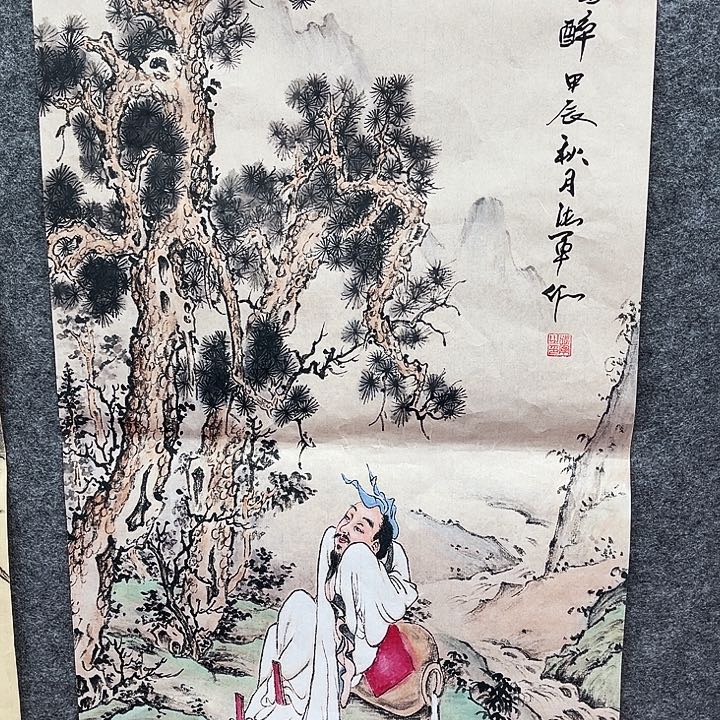 醉甲辰秋月法軍作